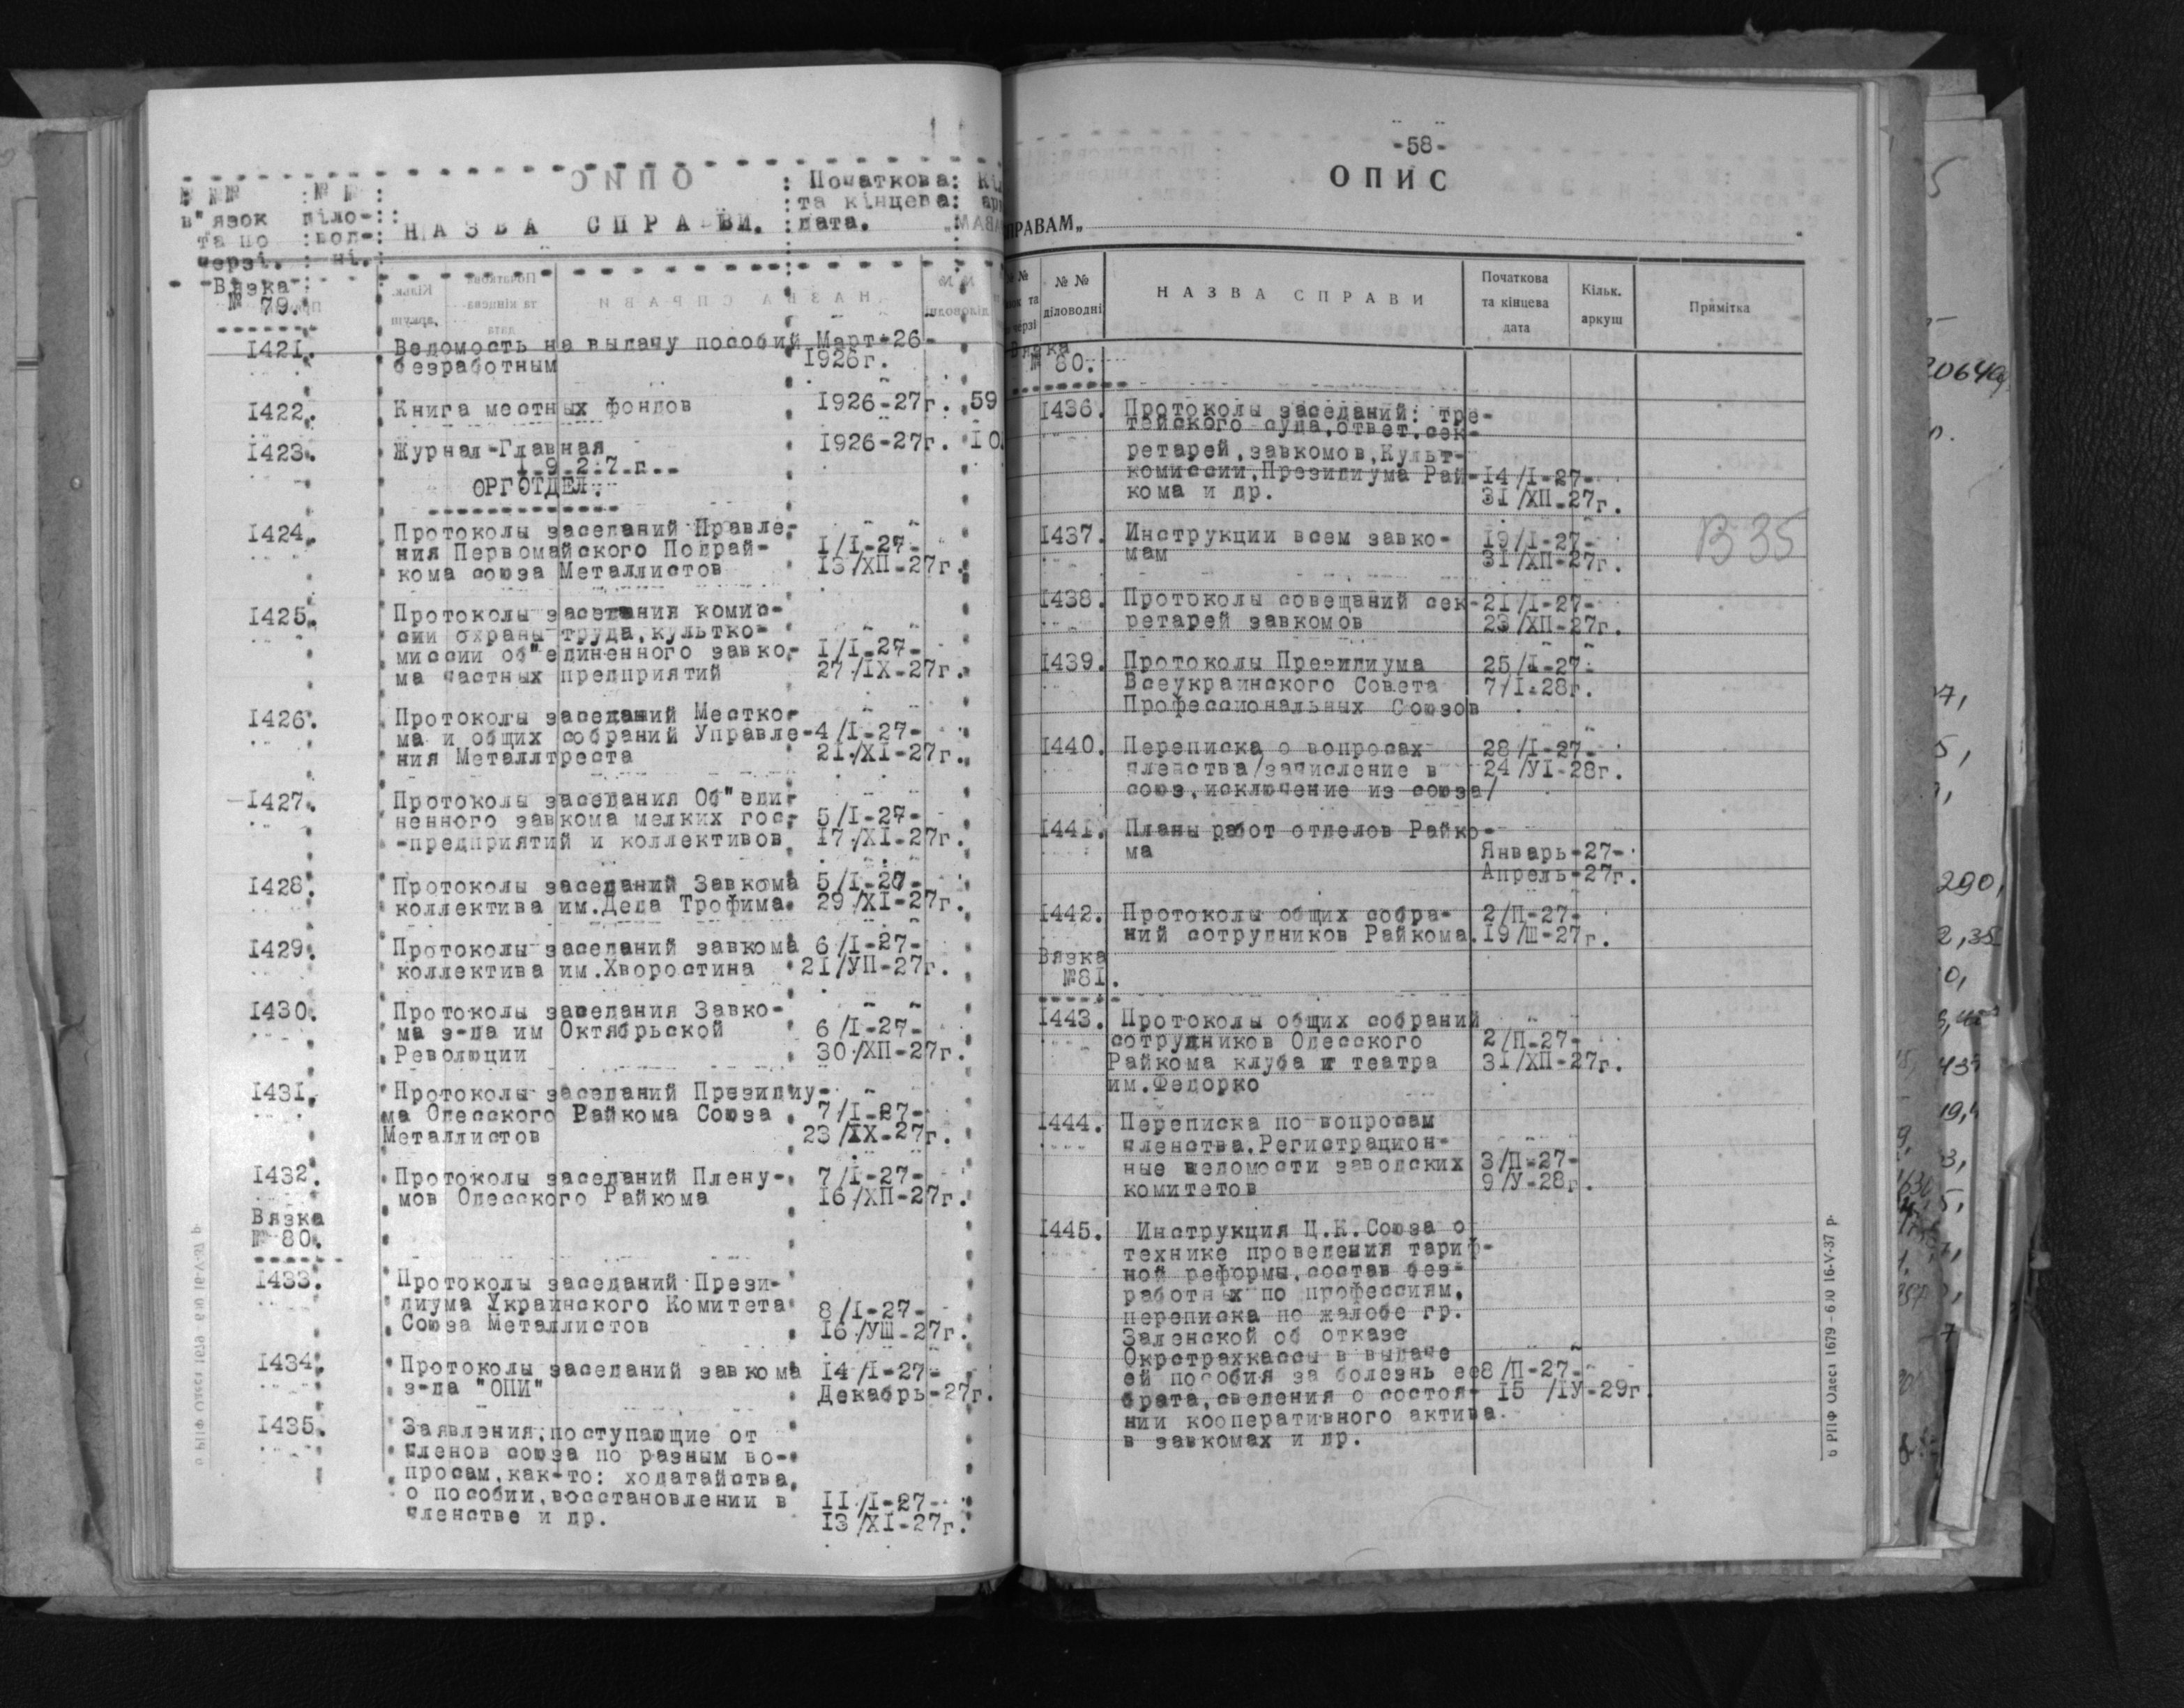 № №№ № №
в"язок діло-
та по вод-
черзі. ні.
НАЗВА СПРАВИ.
Початкова
та кінцева
дата.
Вязка
№ 79.
1421. Ведомость на выдачу пособий Март-26-
безработным 1926г.
1422. Книга местных фондов 1926-27г. 59
1423. Журнал-Главная 1926-27г. 10
1.9.2.7.г.
ОРГОТДЕЛ.
1424. Протоколы заседаний Правле-
ния Первомайского Подрай- I/I-27-
кома союза Металлистов 13/ХП-27г.
1425. Протоколы заседания комис-
сии охраны труда,культко-
миссии об"единенного завко- I/I-27-
ма частных предприятий 27/IX-27г.
1426. Протоколы заседаний Местко-
ма и общих собраний Управле-4/I-27-
ния Металлтреста 21/XI-27г.
1427. Протоколы заседания Об"еди-
ненного завкома мелких гос- 5/I-27-
-предприятий и коллективов 17/XI-27г.
1428. Протоколы заседаний Завкома 5/I-27-
коллектива им.Деда Трофима 29/XI-27г.
1429. Протоколы заседаний завкома 6/I-27-
коллектива им.Хворостина 21/УП-27г.
1430. Протоколы заседания Завко-
ма з-да им Октябрьской 6/I-27-
Революции 30/ХП-27г.
1431. Протоколы заседаний Президиу-
ма Одесского Райкома Союза 7/I-27-
Металлистов 23/IX-27г.
1432. Протоколы заседаний Плену- 7/I-27-
мов Одесского Райкома 16/ХП-27г.
Вязка
№ 80.
1433. Протоколы заседаний Прези-
диума Украинского Комитета 8/I-27-
Союза Металлистов 16/УШ-27г.
1434. Протоколы заседаний завкома 14/I-27-
з-да "ОПИ" Декабрь-27г.
1435. Заявления,поступающие от
членов союза по разным во-
просам,как-то: ходатайства
о пособии,восстановлении в 11/I-27-
членстве и др. 13/XI-27г.
-58-
ОПИС
ПРАВАМ„
№ №
№ №
діловодні
НАЗВА СПРАВИ
Початкова
та кінцева
дата
Кільк.
аркуш
Примітка
Вязка
№ 80.
1436. Протоколы заседаний: тре-
тейского суда,ответ.сек-
ретарей,завкомов,Культ-
комиссии,Президиума Рай-14/I-27-
кома и др. 31/ХП-27г.
1437. Инструкции всем завко- 19/I-27-
мам 31/ХП-27г.
В 35
1438. Протоколы совещаний сек-21/I-27-
ретарей завкомов 23/ХП-27г.
1439. Протоколы Президиума 25/I-27-
Всеукраинского Совета 7/I-28г.
Профессиональных Союзов
1440. Переписка о вопросах 28/I-27-
членства/зачисление в 24/УI-28г.
союз,исключение из союза/
1441. Планы работ отделов Райко-
ма Январь-27-
Апрель-27г.
1442. Протоколы общих собра- 2/П-27-
ний сотрудников Райкома.19/Ш-27г.
Вязка
№81.
1443. Протоколы общих собраний
сотрудников Одесского 2/П-27-
Райкома клуба и театра 31/ХП-27г.
им.Федорко
1444. Переписка по вопросам
членства.Регистрацион-
ные ведомости заводских 3/П-27-
комитетов 9/У-28г.
1445. Инструкция Ц.К.Союза о
технике проведения тариф-
ной реформы,состав без-
работных по профессиям,
переписка по жалобе гр.
Заленской об отказе
Окрстрахкассы в выдаче
ей пособия за болезнь ее8/П-27-
брата,сведения о состоя- 15 /IУ-29г.
нии кооперативного актива
в завкомах и др.
6 РПФ Одеса 1679 – 610 16-V-37 р.